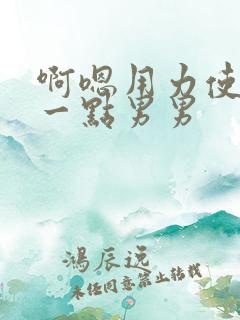 啊嗯用力使
一點男男
鴻辰远
未经同意禁止转载